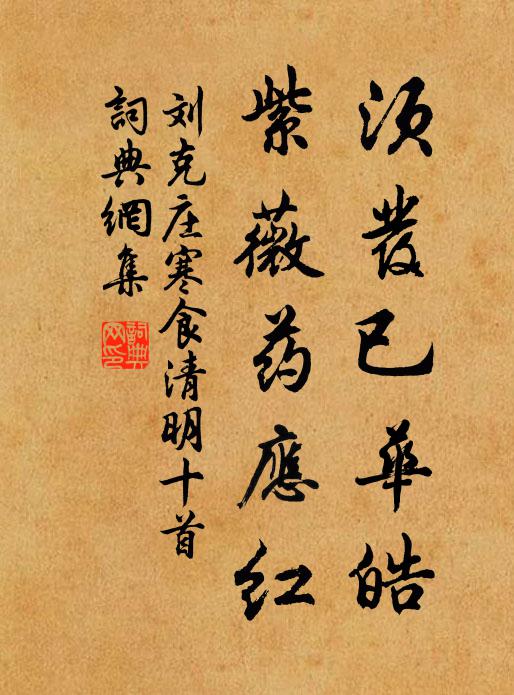 须发已华皓
紫薇药應红
刘克庄寒食清明十首
詞典網集
詞典网印